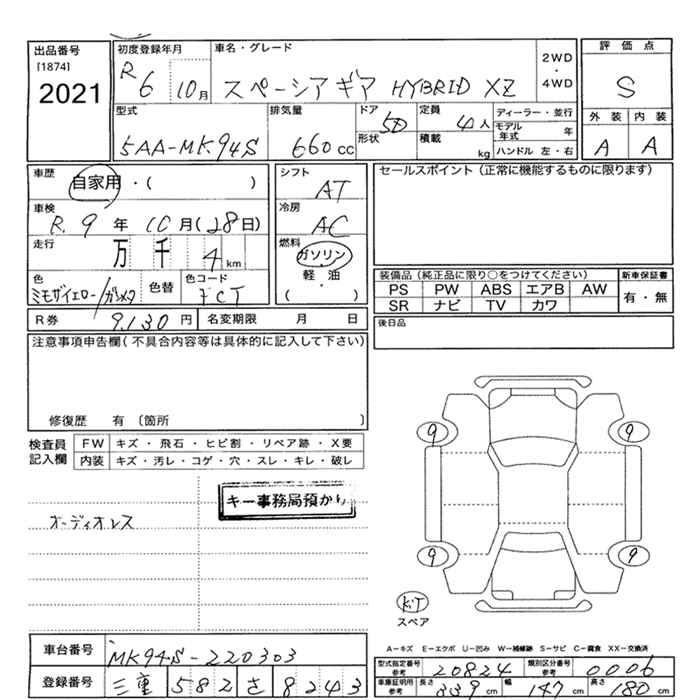 出品番号
[1874]
2021
初度登録年月
R 6 10月
車名・グレード
スペーシアギア HYBRID XZ
2WD
・
4WD
評価点
S
外装 内装
A A
型式
5AA-MK94S
排気量
660cc
ドア
5D
形状
定員
4人
積載
kg
ディーラー・並行
モデル年式 年
ハンドル 左・右
車歴
自家用・( )
車検
R. 9年 10月(28日)
走行
万 千 4 km
色
ミモザイエロー/ガンメタ
色替
色コード
シフト
AT
冷房
AC
燃料
ガソリン
・
軽・油
・
( )
セールスポイント(正常に機能するものに限ります)
装備品(純正品に限り○をつけてください)
PS PW ABS エアB AW
SR ナビ TV カワ
新車保証書
有・無
R券 9,130円
名変期限 月 日
後日品
注意事項申告欄(不具合内容等は具体的に記入して下さい)
修復歴 有 〔箇所 〕
検査員記入欄
FW キズ・飛石・ヒビ割・リペア跡・X要
内装 キズ・汚レ・コゲ・穴・スレ・キレ・破レ
キー事務局預かり
オーディオレス
9 9
9 9
KT
スペア
A－キズ E－エクボ U－凹み W－補修跡 S－サビ C－腐食 XX－交換済
車台番号 MK94S-220303
登録番号 三重 582 さ 8243
型式指定番号 参考 20824
類別区分番号 参考 0006
車庫証明用 参考
長さ 339cm
幅 147cm
高さ 180cm